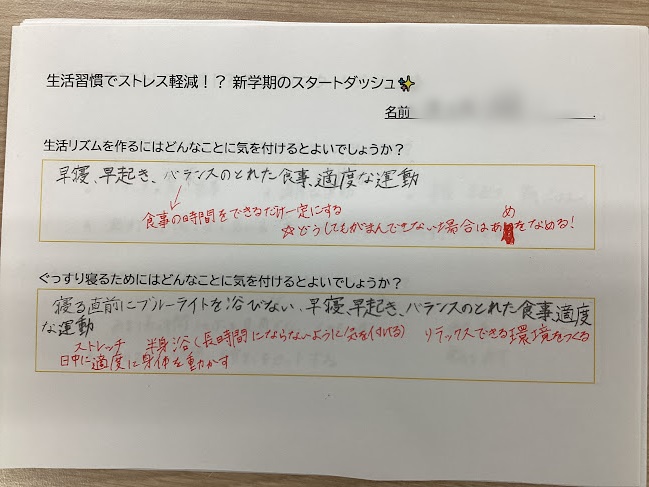 生活習慣でストレス軽減！？ 新学期のスタートダッシュ✨
名前
生活リズムを作るにはどんなことに気を付けるとよいでしょうか？
早寝、早起き、バランスのとれた食事、適度な運動
食事の時間をできるだけ一定にする
め
☆どうしてもがまんできない場合はあをなめる！
ぐっすり寝るためにはどんなことに気を付けるとよいでしょうか？
寝る直前にブルーライトを浴びない、早寝、早起き、バランスのとれた食事、適度
な運動
ストレッチ 半身浴(長時間にならないように気を付ける) リラックスできる環境をつくる
日中に適度に身体を動かす